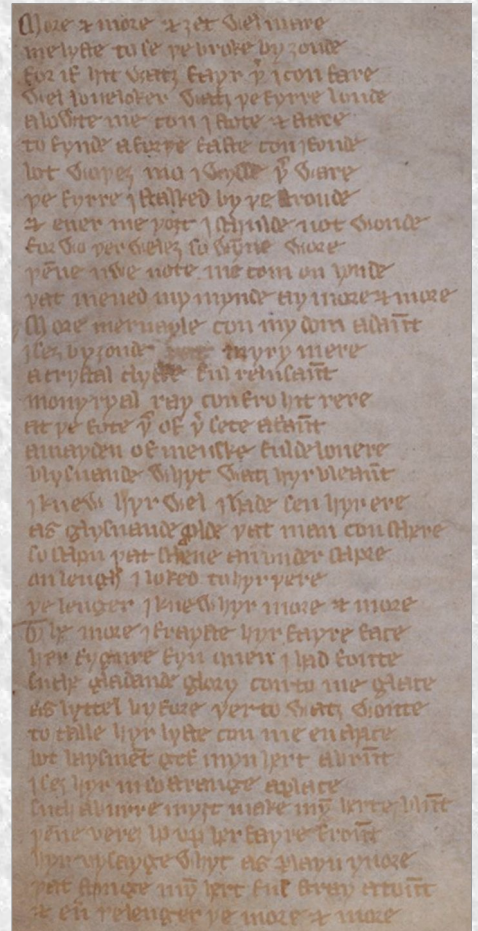 More & more & ȝet wel mare
me lyste to se þe broke by ȝonde
for if hit watȝ fayr þ̉ I con fare
wel loueloker watȝ þe fyrre londe
abowte me con I stote & stare
to fynde a forþe faste con I fonde
bot woþeȝ mo I wysse þ̉ ware
þe fyrre I stalked by þe stronde
& euer me þoȝt I schulde not wonde
for wo þer weleȝ so wȳne wore
þēne nwe note me com on honde
þat meued my mynde ay more & more
More meruayle con my dom adaūt
I seȝ by ȝonde þat myry mere
a crystal clyffe ful relusaūt
mony ryal ray con fro hit rere
at þe fote þ̉ of þ̉ sete a faūt
a mayden of menske ful debonere
blysnande whyt watȝ hyr bleaūt
I knew hyr wel I hade sen hyr ere
as glysnande golde þat man con schere
so schon þat schene an vnder schore
on lenghe I loked to hyr þere
þe lenger I knew hyr more & more
The more I frayste hyr fayre face
her fygure fyn quen I had fonte
suche gladande glory con to me glace
as lyttel byfore þerto watȝ wonte
to calle hyr lyste con me enchace
bot baysmēt gef myn hert a brūt
I seȝ hyr in so strange a place
such a burre myȝt make mȳ herte blūt
þēne vereȝ ho vp her fayre froūt
hyr vysayge whyt as playn yuore
þat stonge mȳ hert ful stray atoūt
& eủ þe lenger þe more & more